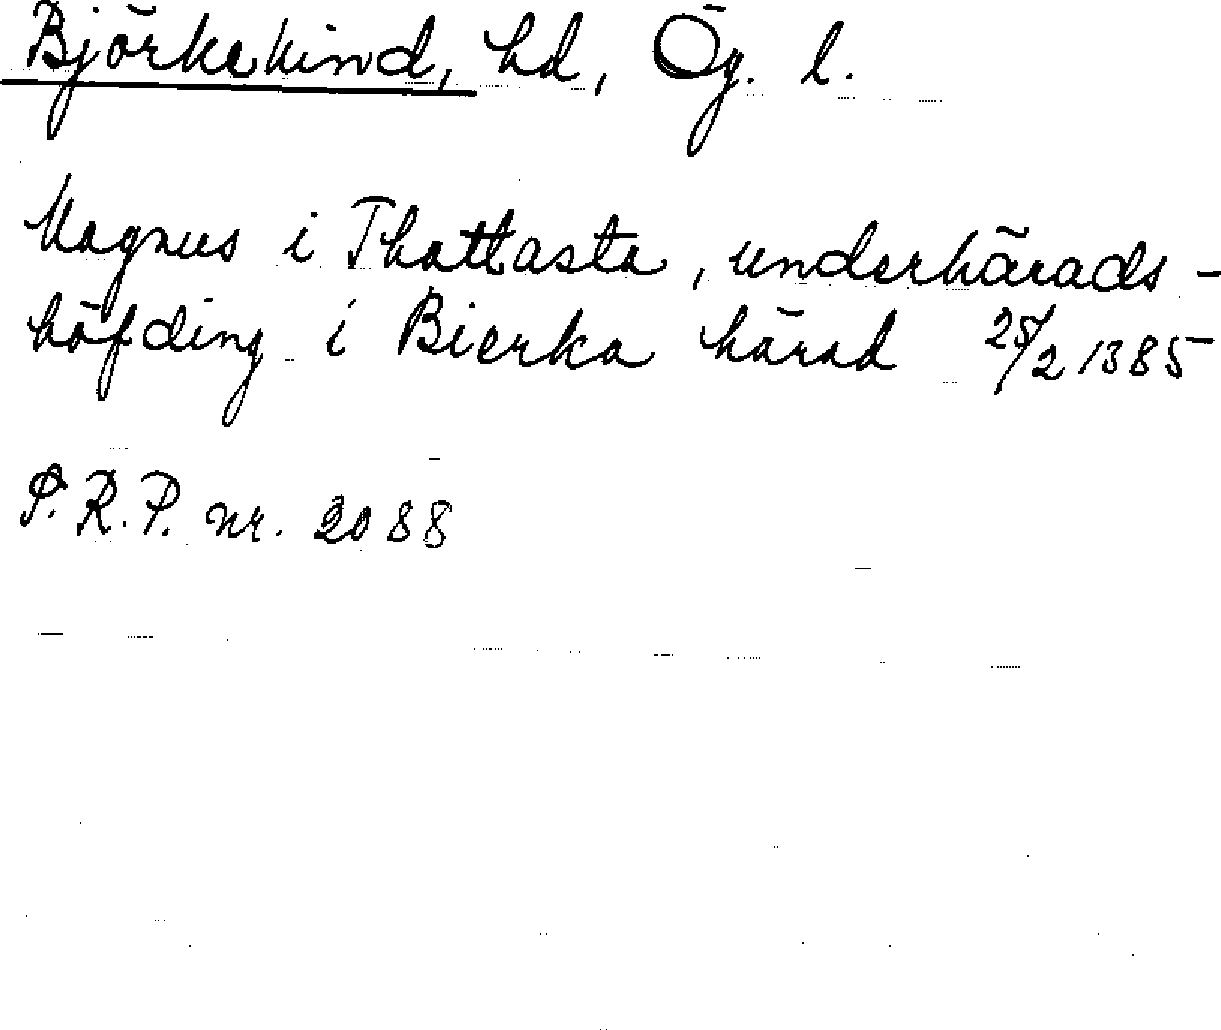 Björkekind, hd, Ög. l.
Magnus i Thattasta, underhärads-
höfding i Bierka härad 25/2 1385
S.R.P. nr. 2088